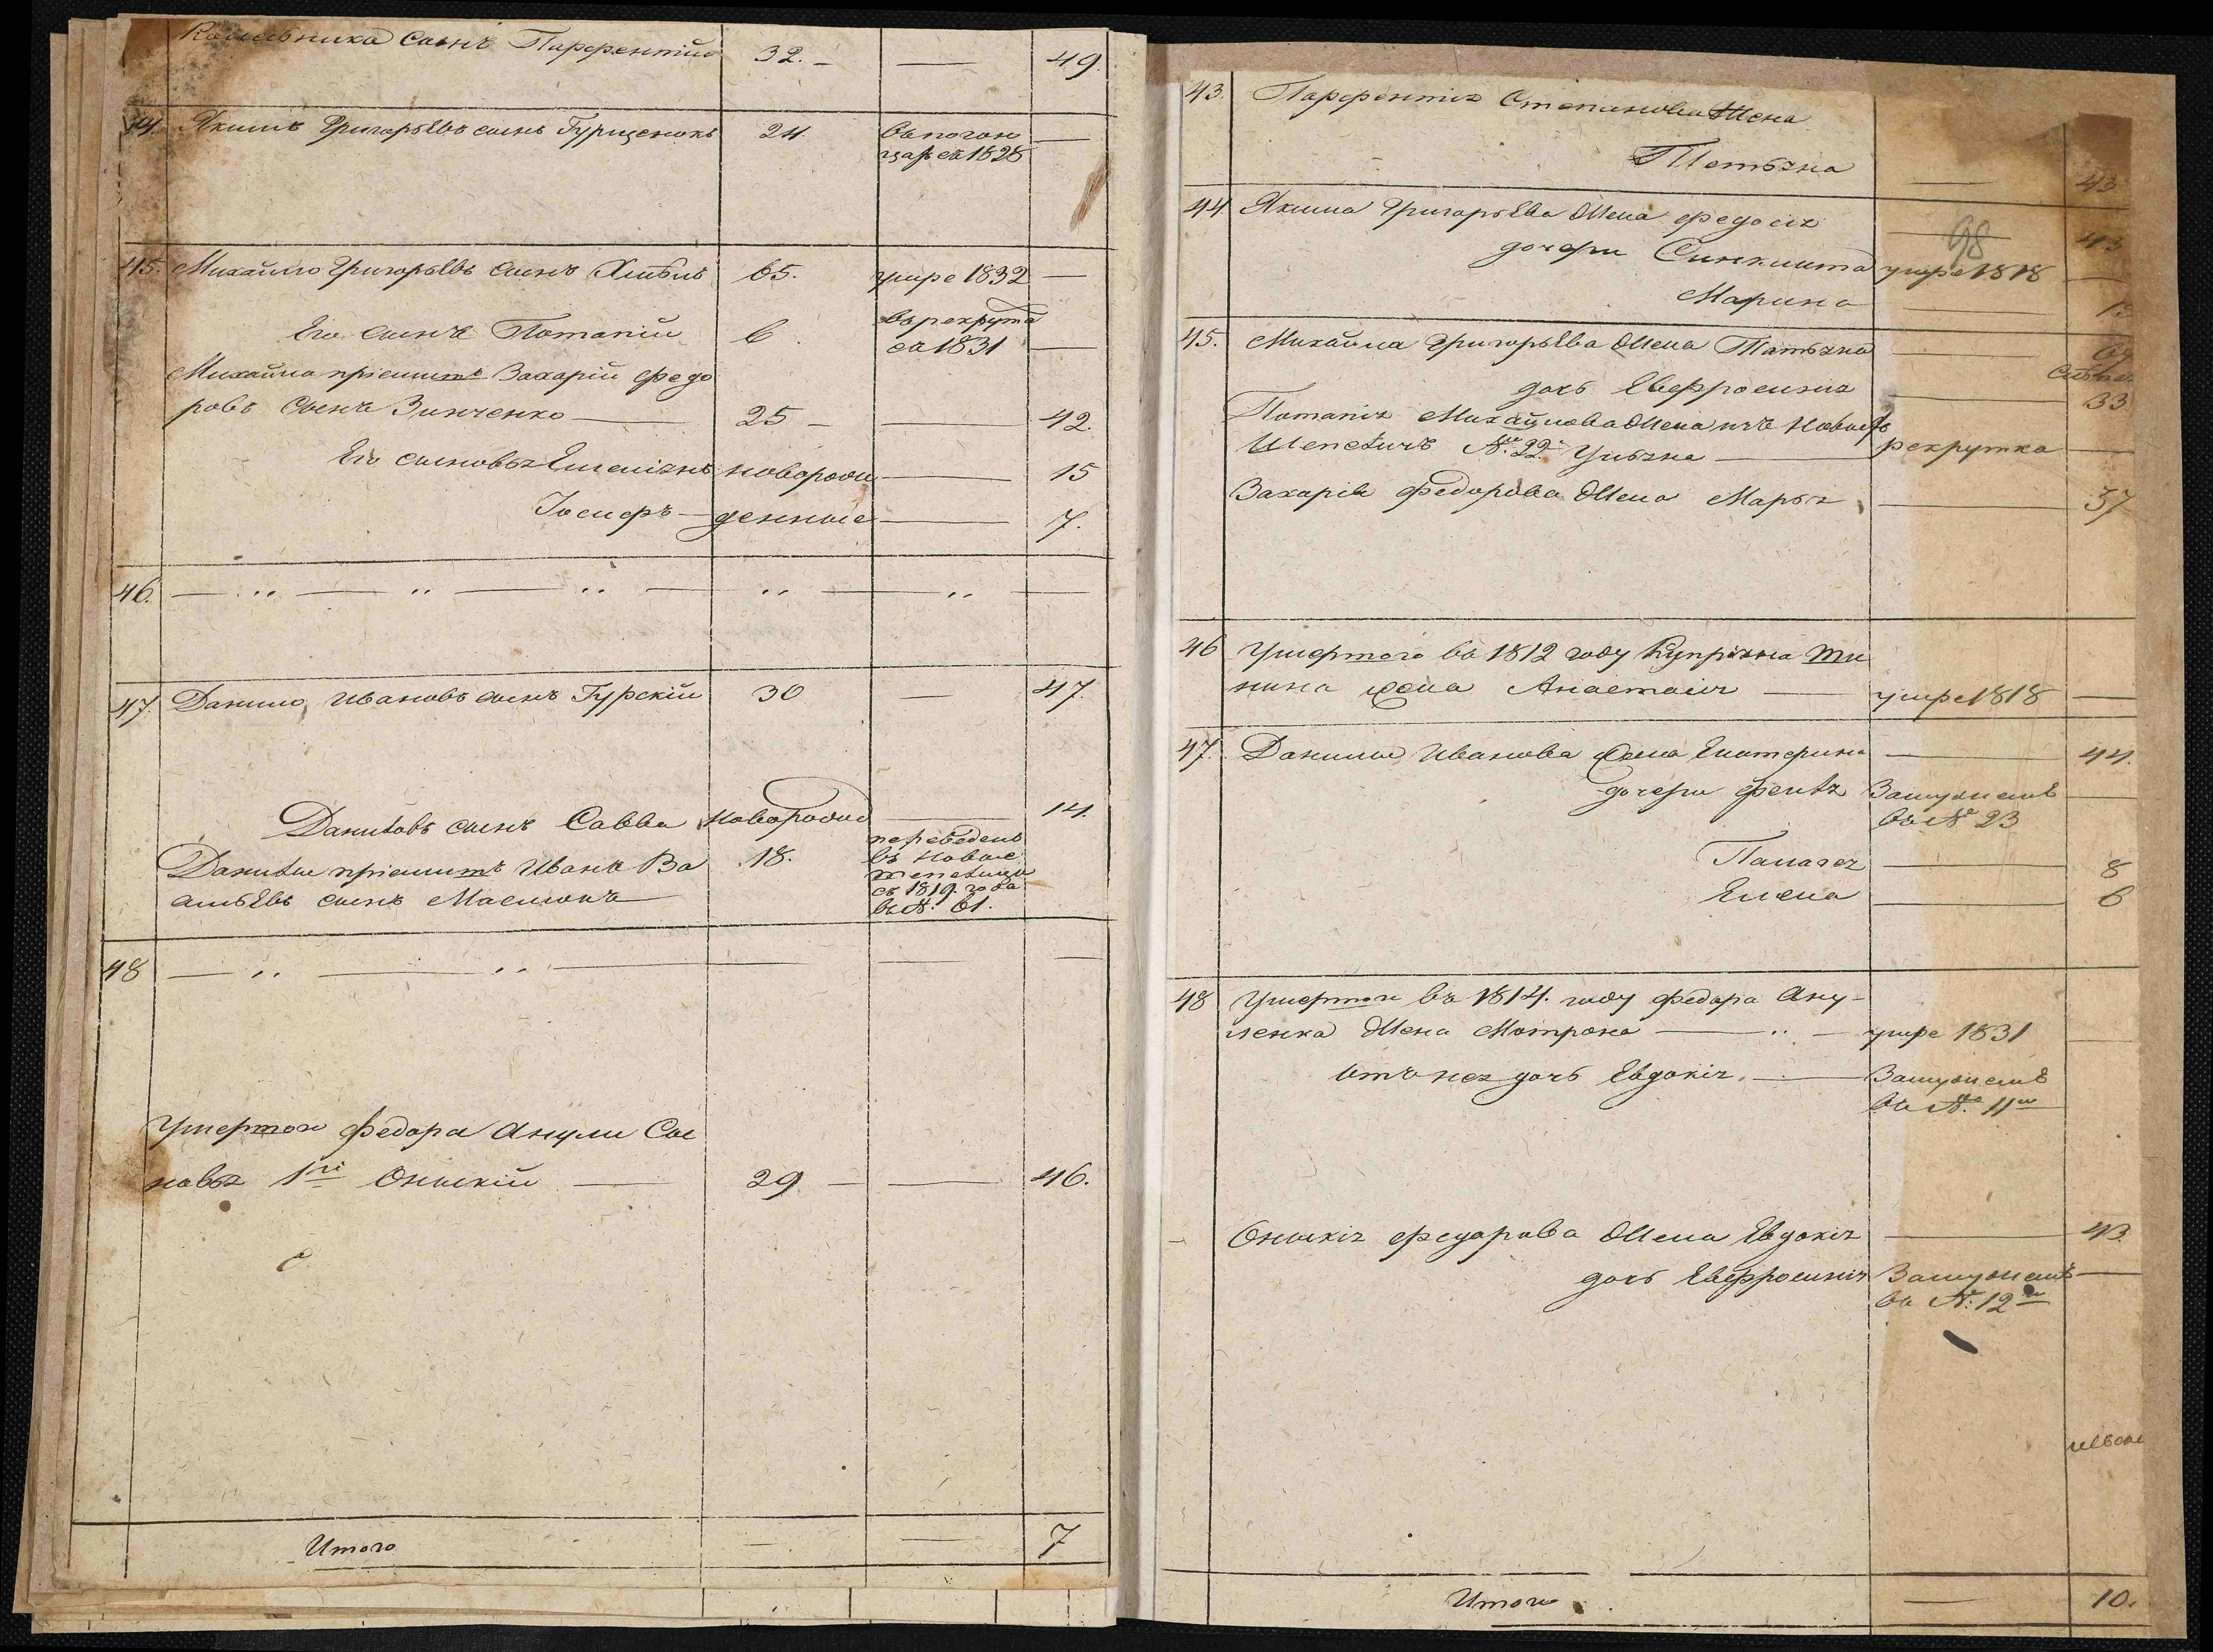 сынъ Парфентій 32. — — 49.
44. Якимъ Григорьевъ сынъ Гурщенокъ 24. —
съ 1828
45. Михайло Григорьевъ сынъ 65. умре 1832 —
Его сынъ Потапій 6. въ рекрута
съ 1831 —
Михайла пріемитъ Захарій Федо
ровъ сынъ Зинченко — 25 — — 42.
Его сыновья Емеліянъ новорож — 15
Іосифъ — денные — 7.
46. — „ — „ — „ — „ — „ —
47. Данило Ивановъ сынъ Гурскій 30 — 47.
Даниловъ сынъ Савва новорожд — 14.
переведенъ
Данилы пріемитъ Иванъ Ва 18. въ Новые
Шепеличи
сильевъ сынъ съ 1819. года
въ №: 61.
48 — „ — „ — — — —
Умершого Федора Анули Сы
новья 1й Онискій — 29 — — 46.
Итого — — 7
43. Парфентія Степанова Жена
Тетьяна — 43
98
44 Якима Григорьева Жена Федосія — 43
дочери умре 1818 —
Марина —
45. Михайла Григорьева Жена Татьяна —
дочь Евфросинія — 33
Потапія Михайлова Жена изъ Новыхъ
Шепеличъ №. 22. Ульяна — рекрутка —
Захарія Федорова Жена Марья — 37
46 Умершого въ 1812 году Купріяна
жена Анастасія — умре 1818 —
47. Данилы Иванова Жена Екатерина — 44.
дочери Фекла Замужемъ —
въ № 23
Палагея — 8
Елена — 6
48 Умершого въ 1814. году Федора Ану-
ленка Жена Мотрона — „ — умре 1831 —
дочь Евдокія. — Замужемъ
въ №. 11м
— Онискія Федорова Жена Евдокія — 43
дочь Евфросинія Замужемъ —
въ №: 12м
Итого — 10.